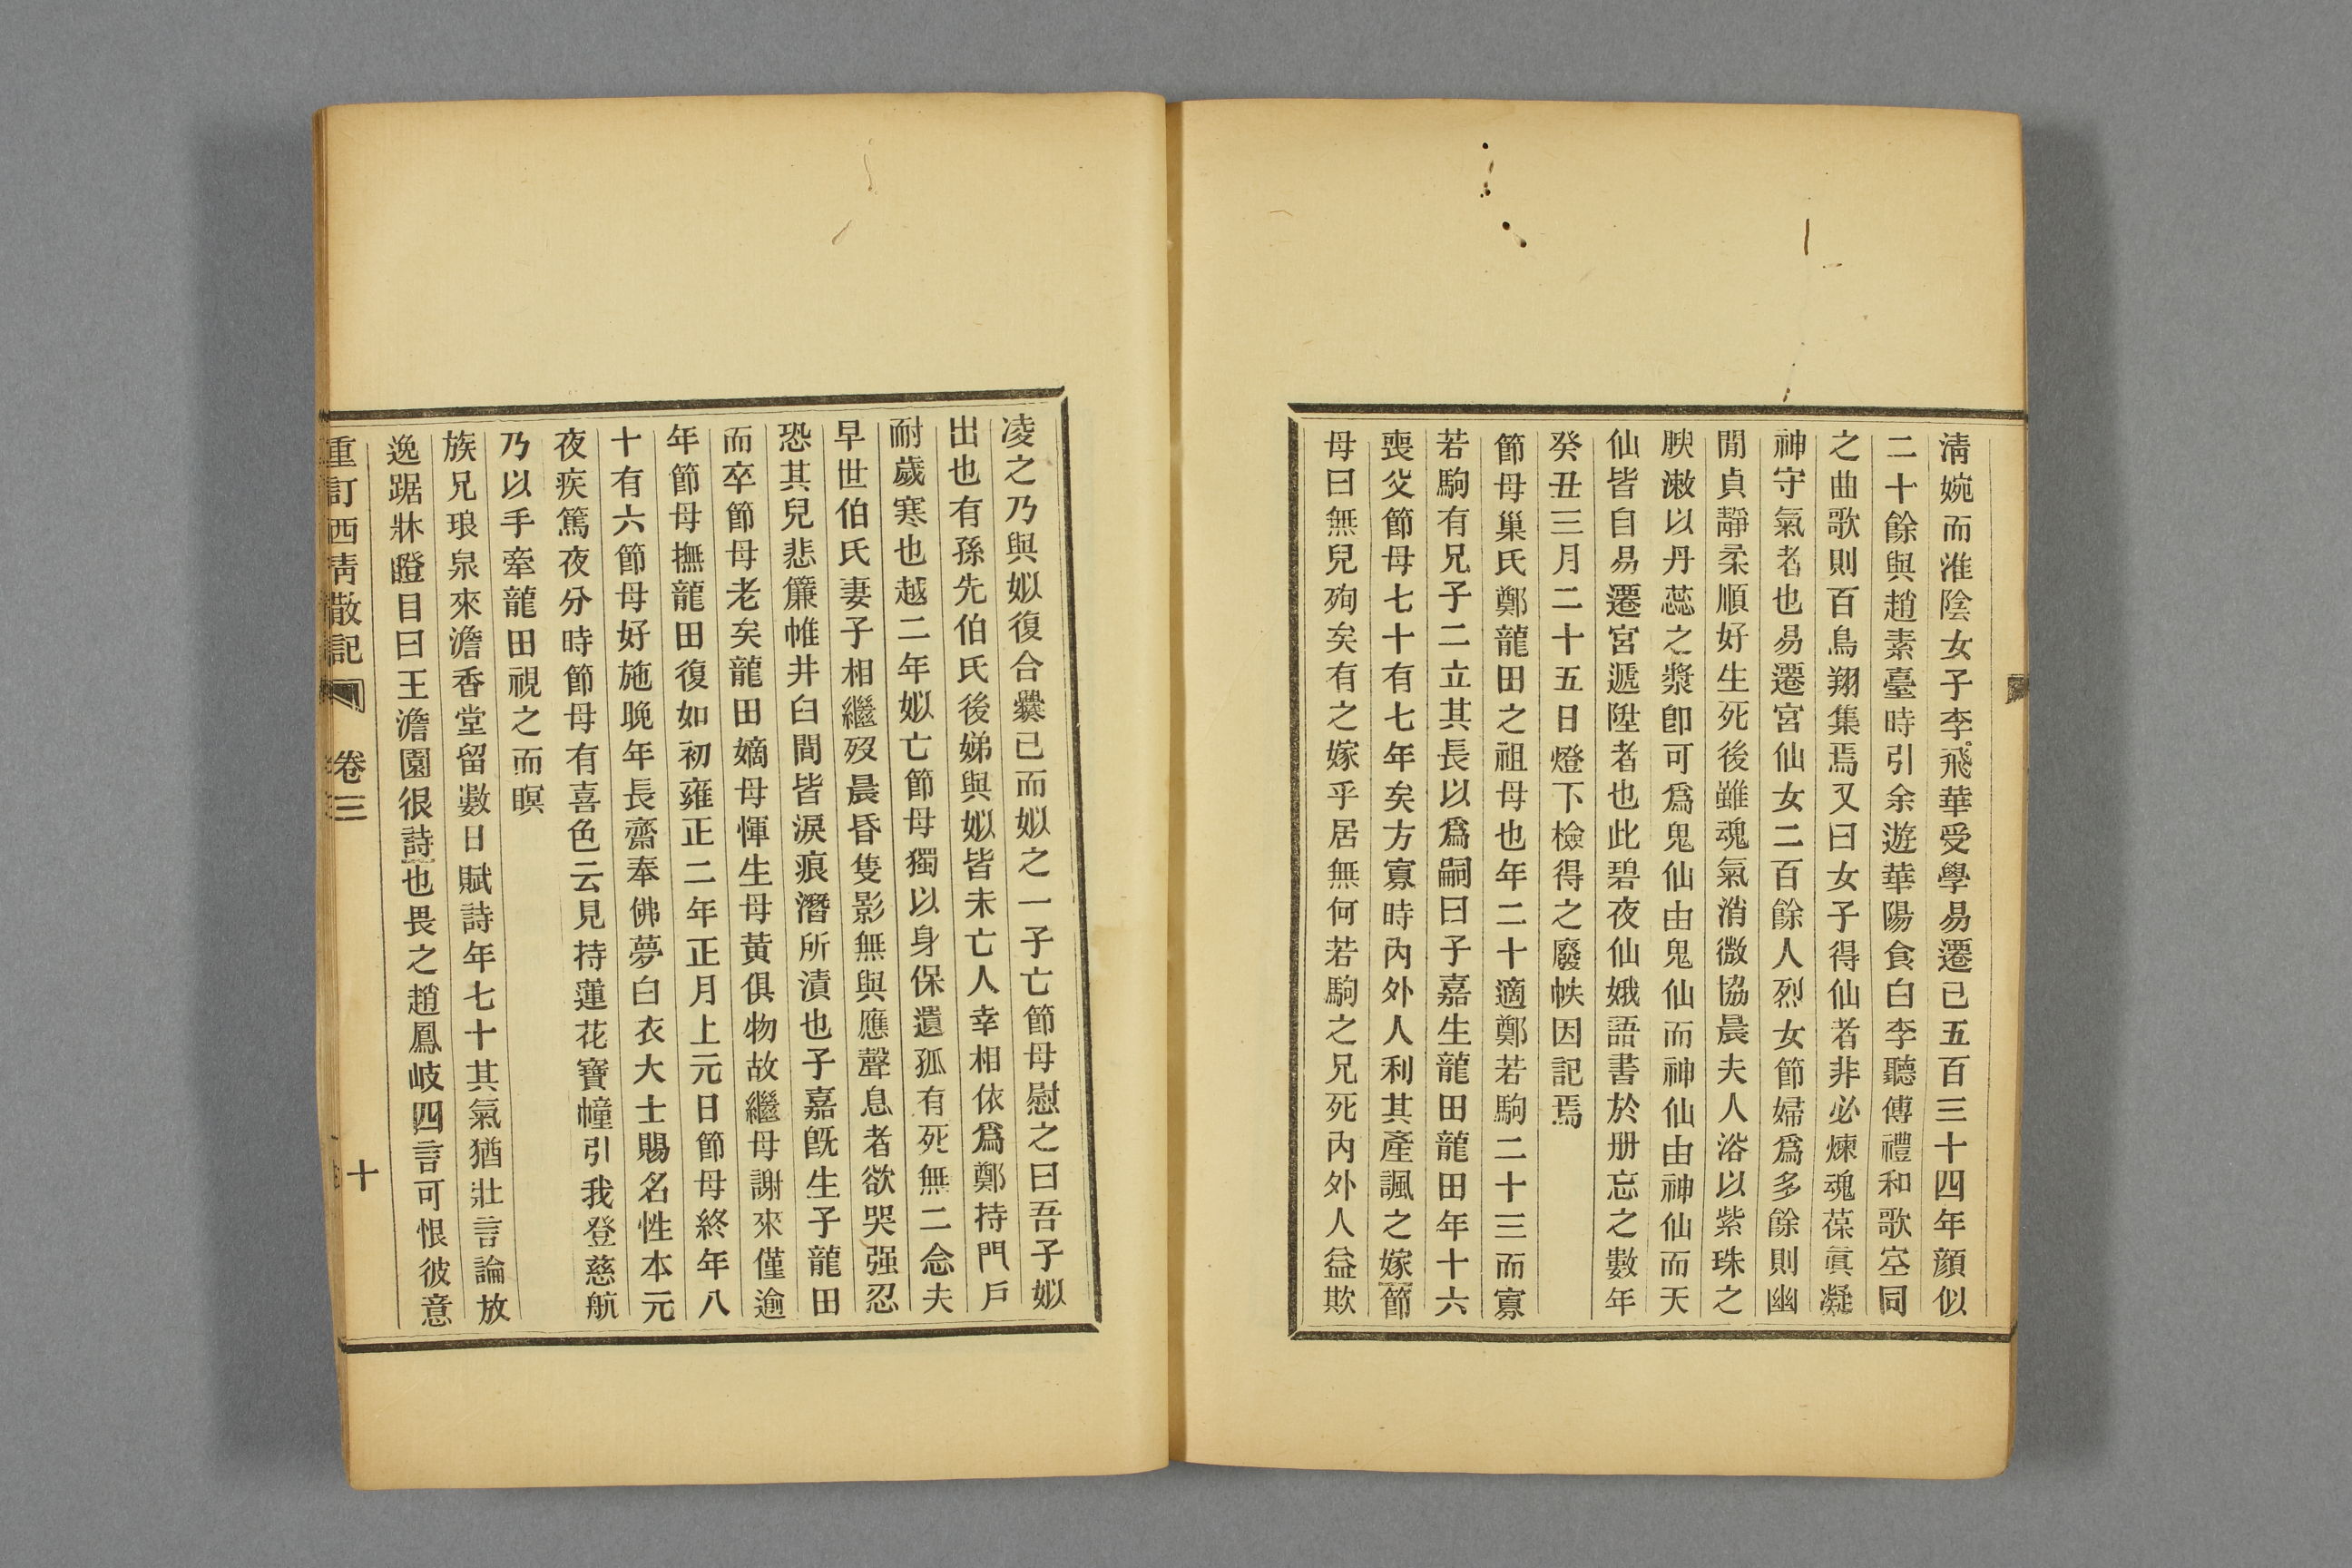 清婉而淮陰女子李飛華受學易遷已五百三十四年顏似
二十餘與趙素臺時引余遊華陽食白李聽傅禮和歌空同
之曲歌則百鳥翔集焉又曰女子得仙者非必煉魂葆眞凝
神守氣者也易遷宮仙女二百餘人烈女節婦爲多餘則幽
閒貞靜柔順好生死後雖魂氣消微協晨夫人浴以紫珠之
腴漱以丹蕊之漿卽可爲鬼仙由鬼仙而神仙由神仙而天
仙皆自易遷宮遞陞者也此碧夜仙娥語書於册忘之數年
癸丑三月二十五日燈下檢得之廢帙因記焉
節母巢氏鄭龍田之祖母也年二十適鄭若駒二十三而寡
若駒有兄子二立其長以爲嗣曰子嘉生龍田龍田年十六
喪父節母七十有七年矣方寡時內外人利其產諷之嫁節
母曰無兒殉矣有之嫁乎居無何若駒之兄死內外人益欺
凌之乃與姒復合爨已而姒之一子亡節母慰之曰吾子姒
出也有孫先伯氏後娣與姒皆未亡人幸相依爲鄭持門戶
耐歲寒也越二年姒亡節母獨以身保遺孤有死無二念夫
早世伯氏妻子相繼歿晨昏隻影無與應聲息者欲哭强忍
恐其兒悲簾帷井臼間皆淚痕潛所漬也子嘉旣生子龍田
而卒節母老矣龍田嫡母惲生母黃俱物故繼母謝來僅逾
年節母撫龍田復如初雍正二年正月上元日節母終年八
十有六節母好施晚年長齋奉佛夢白衣大士賜名性本元
夜疾篤夜分時節母有喜色云見持蓮花寶幢引我登慈航
乃以手牽龍田視之而瞑
族兄琅泉來澹香堂留數日賦詩年七十其氣猶壯言論放
逸踞牀瞪目曰王澹園很詩也畏之趙鳳岐四言可恨彼意
重訂西青散記 卷三 十